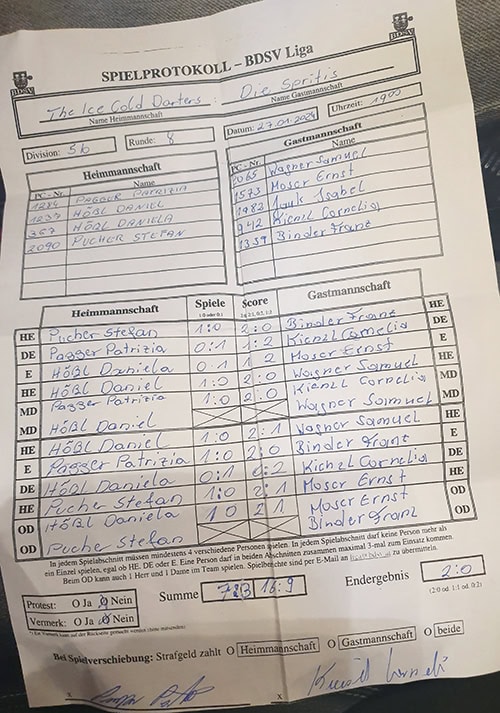 SPIELPROTOKOLL – BDSV Liga
The Ice Cold Darters : Die Spritis
Name Heimmannschaft Name Gastmannschaft
Division: 5b Runde: 8 Datum: 27.01.2024 Uhrzeit: 19 00
Heimmannschaft Gastmannschaft
PC - Nr. Name PC - Nr. Name
1284 PAGGER PATRIZIA 2065 Wagner Samuel
1237 HÖẞL DANIEL 1573 Moser Ernst
367 HÖẞL DANIELA 1982 Isabel
2090 PUCHER STEFAN 942 Kienzl Cornelia
1359 Binder Franz
Heimmannschaft Spiele Score Gastmannschaft
1:0 oder 0:1
HE Pucher Stefan 1:0 2:0 Binder Franz HE
DE Pagger Patrizia 0:1 1:2 Kienzl Cornelia DE
E Hößl Daniela 0:1 1 2 Moser Ernst E
HE Hößl Daniel 1:0 2:0 Wagner Samuel HE
MD Pagger Patrizia 1:0 2:0 Kienzl Cornelia MD
MD Hößl Daniel Wagner Samuel MD
HE Hößl Daniel 1:0 2:1 Wagner Samuel HE
E Pagger Patrizia 1:0 2:0 Binder Franz E
DE Hößl Daniela 0:1 0:2 Kienzl Cornelia DE
HE Pucher Stefan 1:0 2:1 Moser Ernst HE
OD Hößl Daniela 1 0 2 1 Moser Ernst OD
OD Puche Stefan Binder Franz OD
In jedem Spielabschnitt müssen mindestens 4 verschiedene Personen spielen. In jedem Spielabschnitt darf keine Person mehr als
ein Einzel spielen, egal ob HE, DE oder E. Eine Person darf in beiden Abschnitten zusammen maximal 3-mal zum Einsatz kommen.
Beim OD kann auch 1 Herr und 1 Dame im Team spielen. Spielberichte sind per E-Mail an zu übermitteln.
Protest: O Ja O Nein Summe 7:3 16:9 Endergebnis 2:0
Vermerk: O Ja O Nein (2:0 od. 1:1 od. 0:2)
Bei Spielverschiebung: Strafgeld zahlt O Heimmannschaft O Gastmannschaft O beide
x x